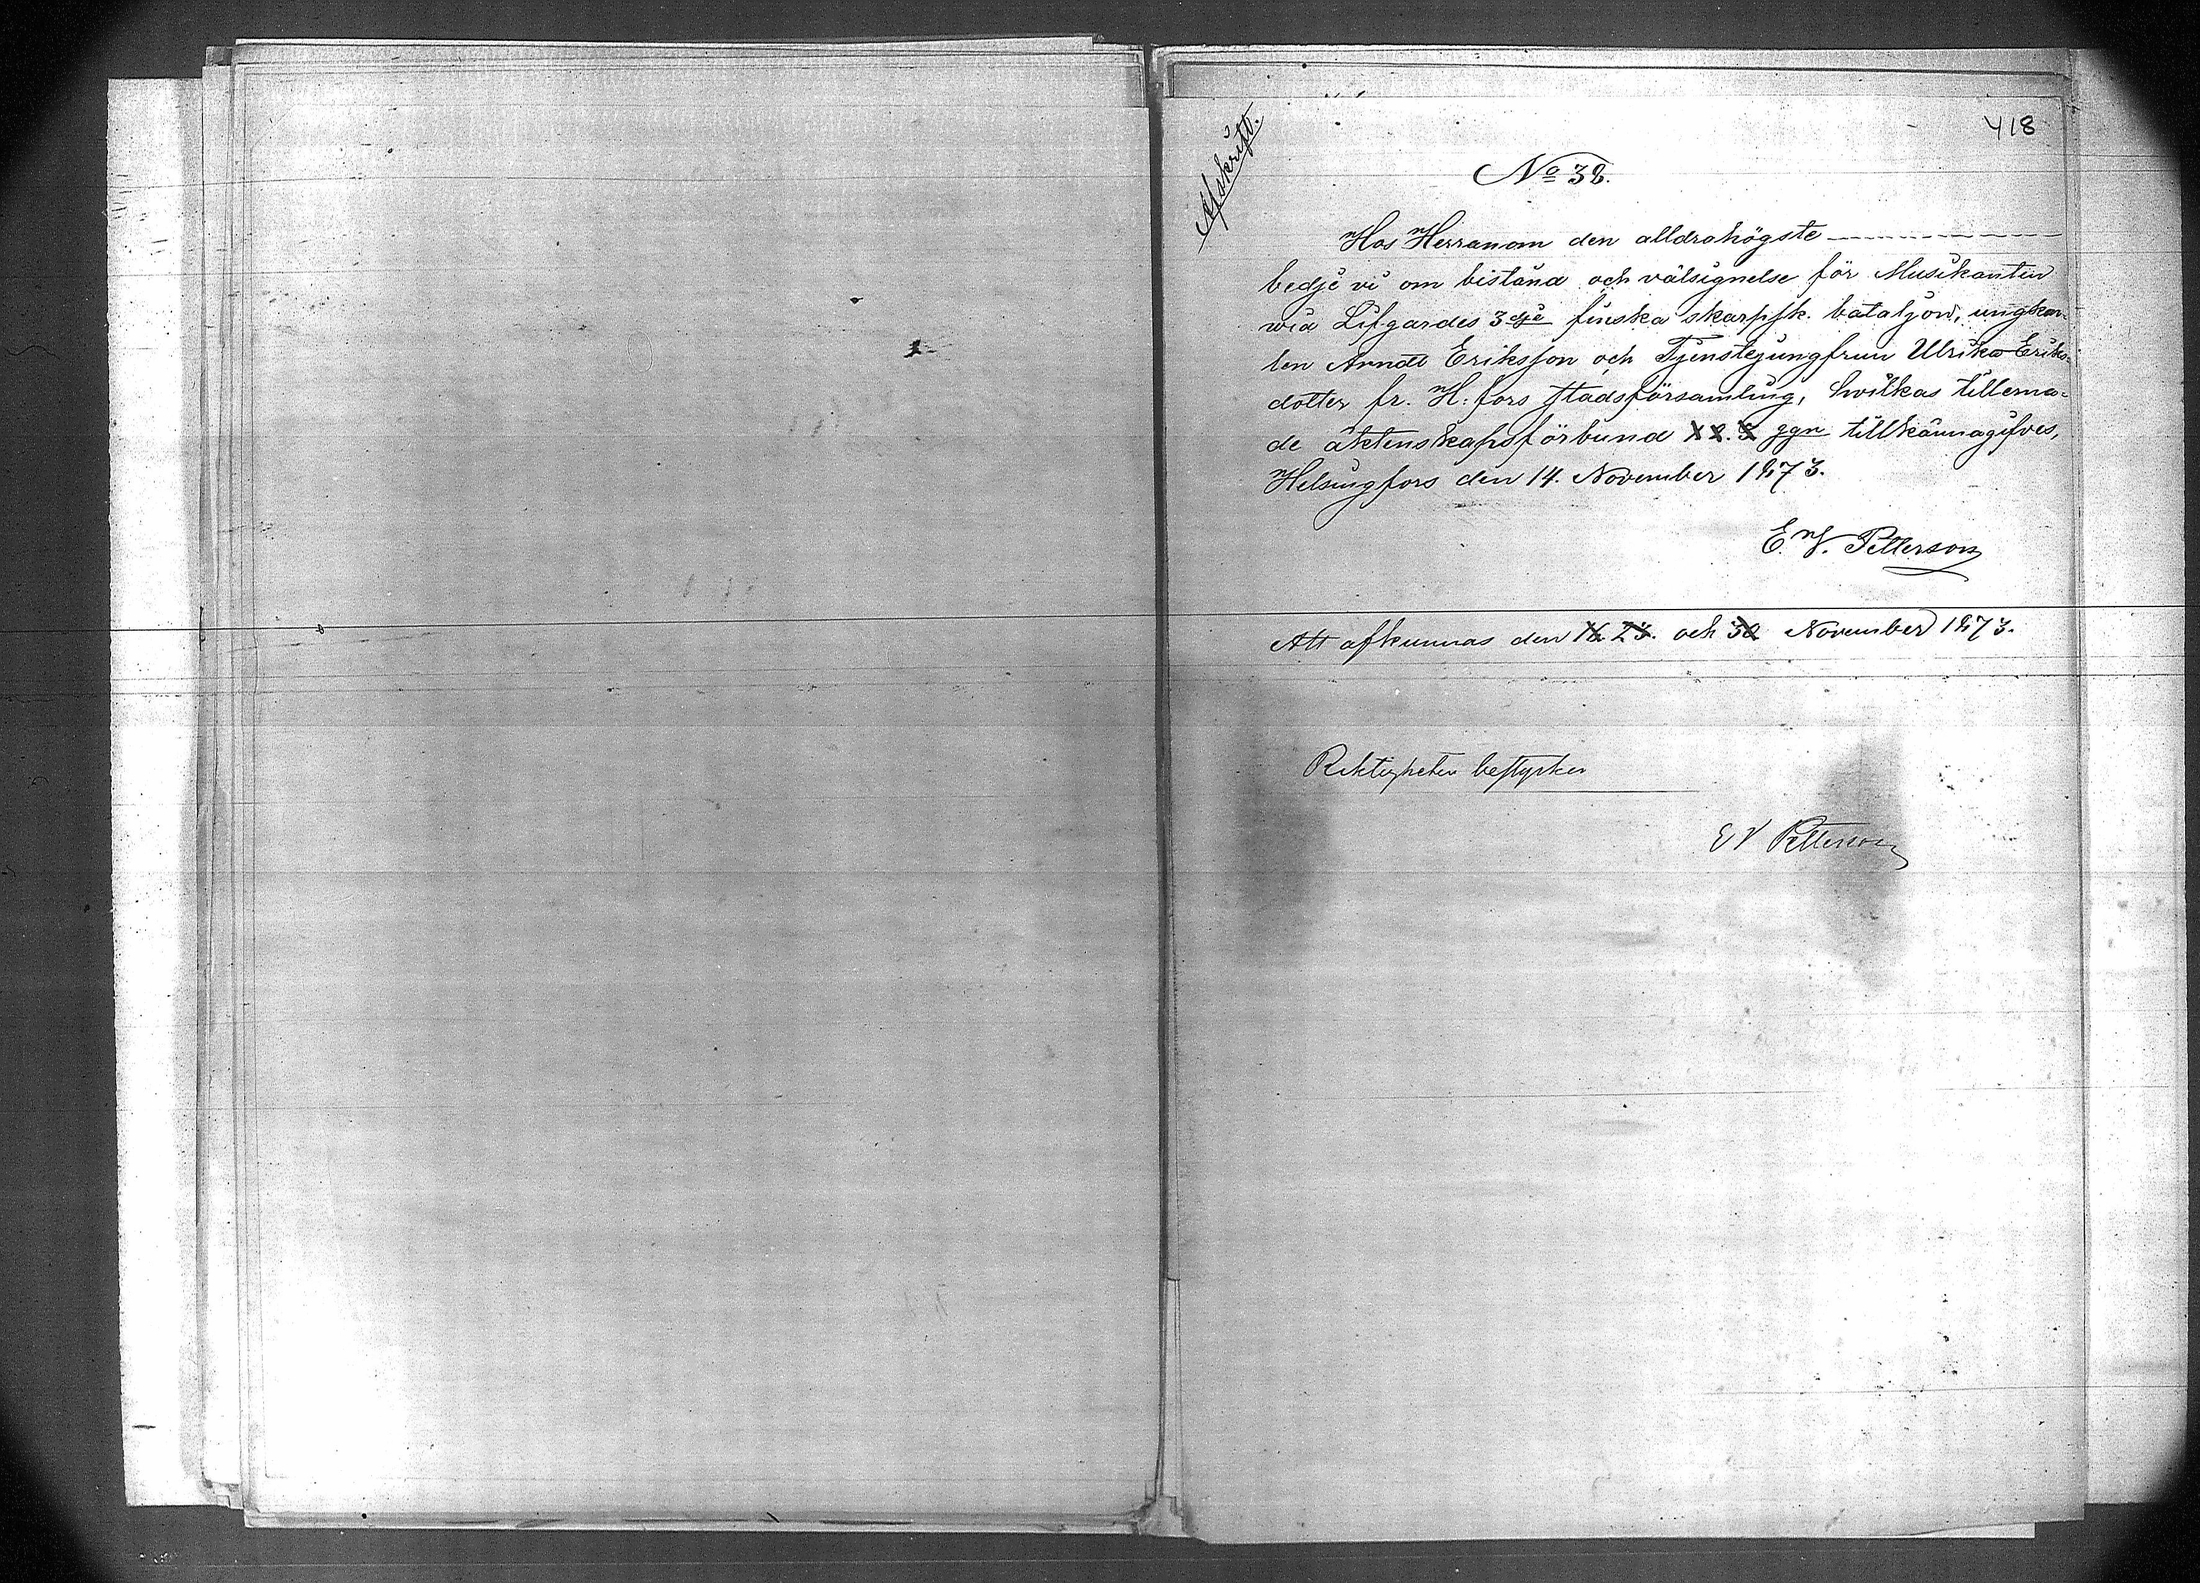 418
Afskrift.
No 38.
Hos Herranom den alldrahögste
bedje vi om bistånd och välsignelse för Musikanten
wid Lifgardes 3dje finska skarpsk. bataljon, ungkar-
len Arndt Eriksson och Tjenstejungfrun Ulrika Eriks-
dotter fr. H:fors stadsförsamling, hwilkas tillerna-
de äktenskapsförbund 1. 2. 3 ggn tillkännagifves,
Helsingfors den 14. November 1873.
E. V. Petterson
Att afkunnas den 16. 23. och 30 November 1873.
Riktigheten bestyrker
E V Petterson